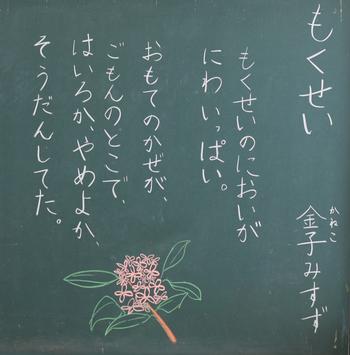 もくせい
かねこ
金子みすず
もくせいのにおいが
にわいっぱい。
おもてのかぜが、
ごもんのとこで、
はいろか、やめよか、
そうだんしてた。